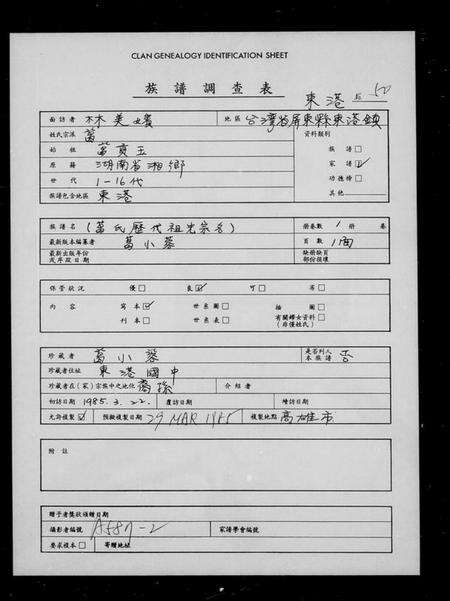 CLAN GENEALOGY IDENTIFICATION SHEET
族譜調查表
東港 50
面訪者 林美嬪 地區 台灣省屏東縣東港鎮
姓氏宗派 萬 資料類別
始祖 萬貢玉 族譜□
原籍 湖南省湘鄉 家譜☑
世代 1-16代 功德榜□
族譜包含地區 東港 其他
族譜名 (萬氏歷代祖先宗名) 冊卷數 1 冊 卷
最新版本編纂者 萬小蓉 頁數 1面
最新出版年份 缺冊缺頁
或序跋日期 部份損壞
保管狀況 優□ 良☑ 可□ 劣□
內容 寫本☑ 世系圖□ 插圖□
刊本□ 世系表□ 有關婦女資料□
(非僅姓氏)
珍藏者 萬小蓉 是否列入本族譜 否
珍藏者住址 東港國中
珍藏者在(家)宗族中之地位 裔孫 介紹者
初訪日期 1985.3.22. 覆訪日期 續訪日期
允許複製☑ 預攝複製日期 29 MAR 1985 複製地點 高雄市
附註
贈予者獎狀頒贈日期
攝影者編號 A587-2 家譜學會編號
要求複本□ 寄贈地址